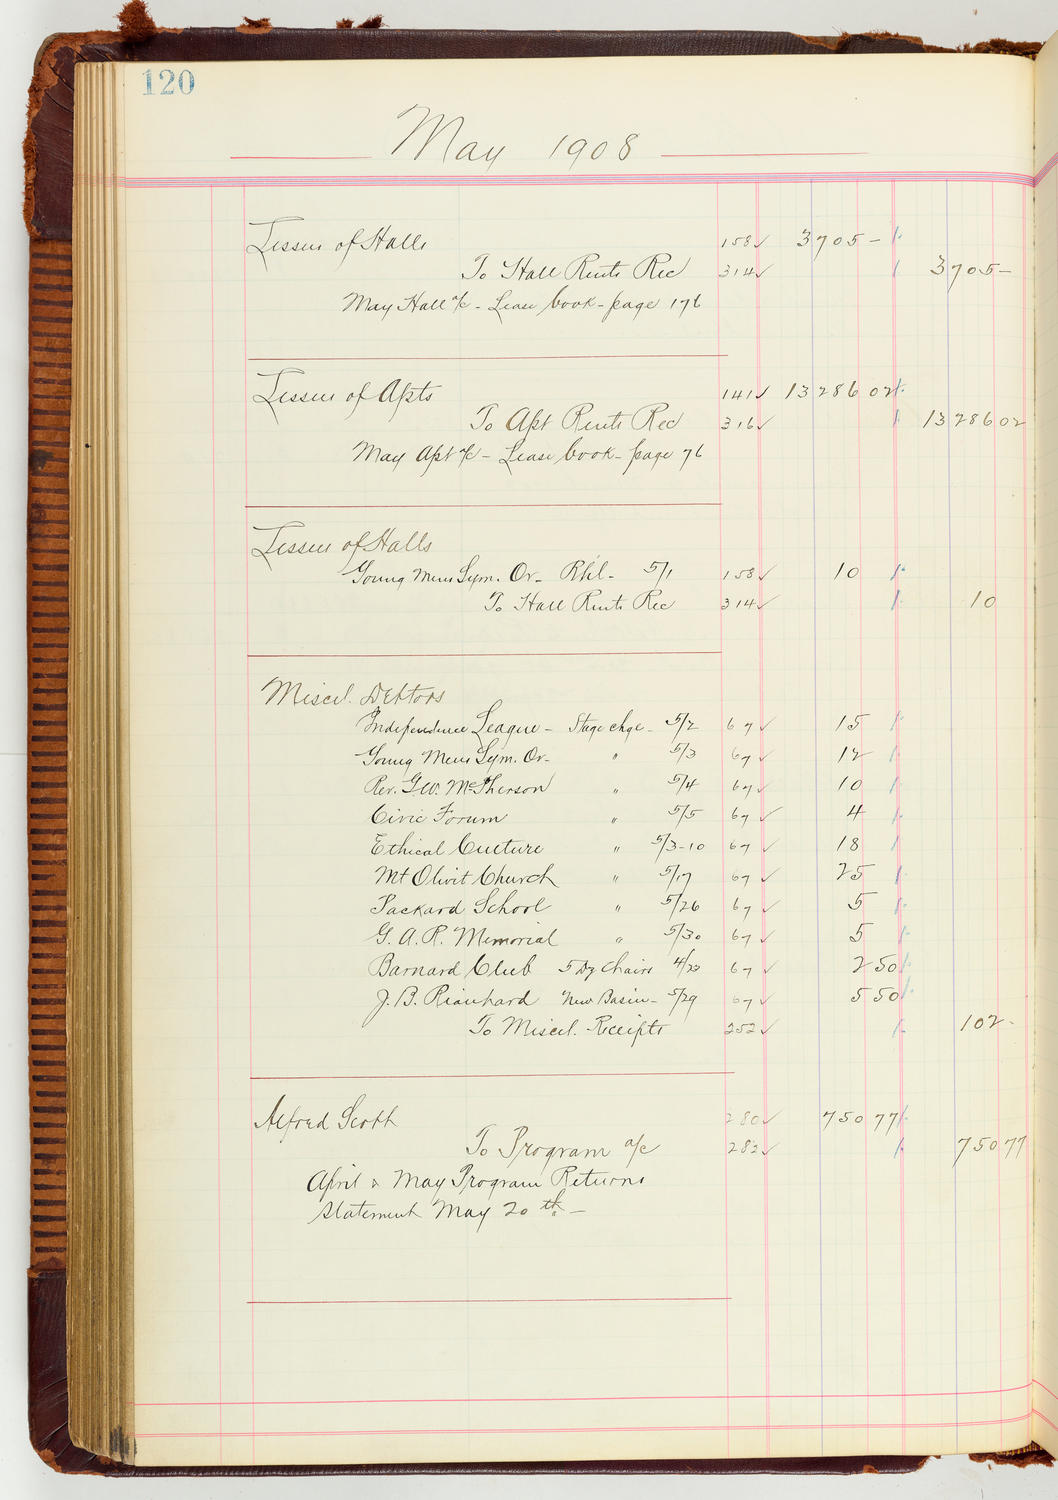 120
May 1908
Lessees of Halls 158 ✓ 3705 –
To Hall Rents Rec 314 ✓ 3705 –
May Hall a/c - Lease book - page 176
Lessees of Apts 141 ✓ 13286 02
To Apt Rents Rec 316 ✓ 13286 02
May Apt a/c - Lease book - page 76
Lessees of Halls
Young Mens Sym. Or - Rhl - 5/1 158 ✓ 10
To Hall Rents Rec 314 ✓ 10
Miscel. Debtors
Independence League - Stage chge - 5/2 67 ✓ 15
Young Mens Sym. Or - " 5/3 67 ✓ 12
Rev. G.W. McPherson " 5/4 67 ✓ 10
Civic Forum " 5/5 67 ✓ 4
Ethical Culture " 5/3-10 67 ✓ 18
Mt Olivit Church " 5/17 67 ✓ 25
Packard School " 5/26 67 ✓ 5
G. A. R. Memorial " 5/30 67 ✓ 5
Barnard Club 5 Dz Chairs 67 ✓ 2 50
J. B. New Basin - 5/29 67 ✓ 5 50
To Miscel. Receipts 252 ✓ 102 -
Alfred Scott 280 ✓ 750 77
To Program a/c 282 ✓ 750 77
April & May Program Returns
Statement May 20th -